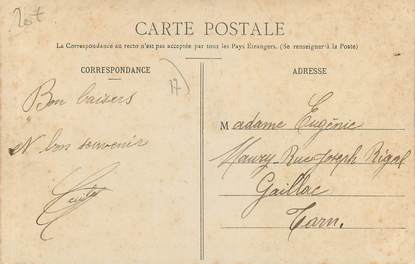 20f
CARTE POSTALE
La Correspondance au recto n'est pas acceptée par tous les Pays Étrangers. (Se renseigner à la Poste)
CORRESPONDANCE
17
Bon baisers
et bon souvenir
ADRESSE
Madame Eugénie
Maury Rue Joseph Rigal
Gaillac
Tarn.